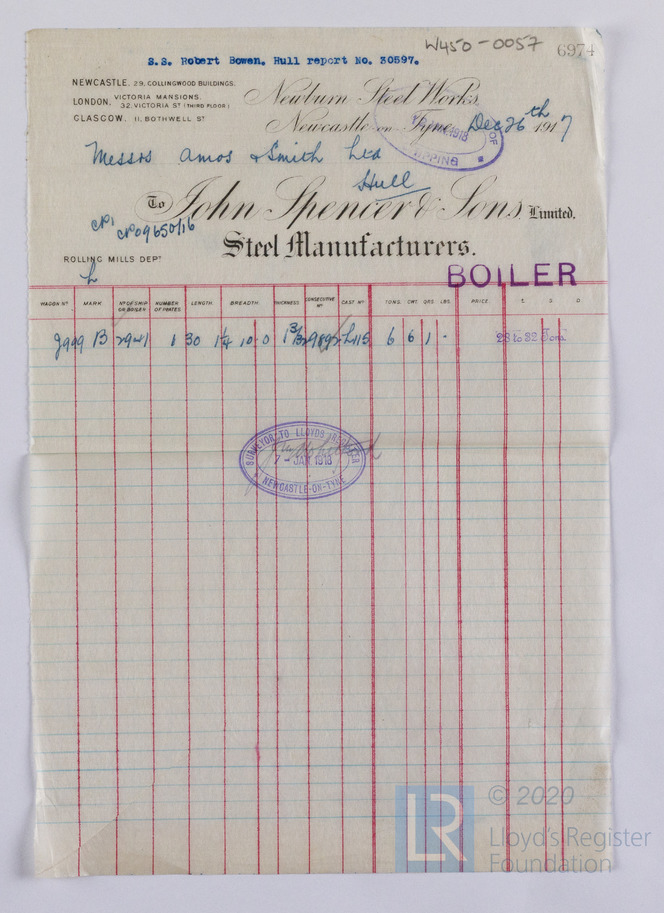 W450-0057
6974
S.S. Robert Bowen. Hull report No. 30597.
NEWCASTLE, 29, COLLINGWOOD BUILDINGS.
LONDON, VICTORIA MANSIONS, 32, VICTORIA ST (THIRD FLOOR)
GLASGOW, 11, BOTHWELL ST
Newburn Steel Works,
Newcastle-on-Tyne, Dec 26th 1917
Messrs Amos & Smith Ltd
Hull
To John Spencer & Sons, Limited.
CP09650/16
Steel Manufacturers.
ROLLING MILLS DEPT
BOILER
WAGON No MARK No OF SHIP OR BOILER NUMBER OF PLATES LENGTH. BREADTH. THICKNESS CONSECUTIVE No CAST No TONS. CWT. QRS. LBS. PRICE. £ S D
B 2941 1 30 1¼ 10-0 6 6 1 - 28 to 32 Tons
SURVEYOR TO LLOYDS REGISTER
7- JAN. 1918
NEWCASTLE-ON-TYNE
LR
© 2020
Lloyd's Register
Foundation